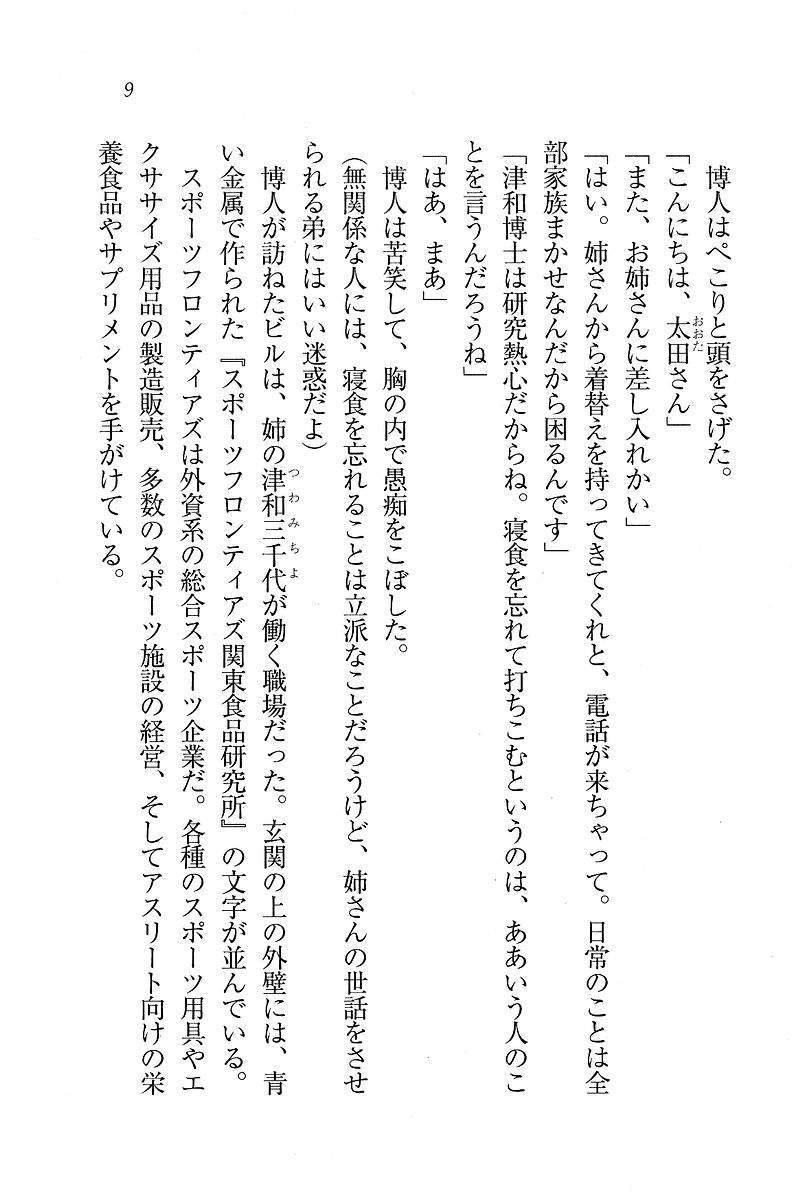 9
博人はぺこりと頭をさげた。
「こんにちは、太田さん」
おおた
「また、お姉さんに差し入れかい」
「はい。姉さんから着替えを持ってきてくれと、電話が来ちゃって。日常のことは全
部家族まかせなんだから困るんです」
「津和博士は研究熱心だからね。寝食を忘れて打ちこむというのは、ああいう人のこ
とを言うんだろうね」
「はあ、まあ」
博人は苦笑して、胸の内で愚痴をこぼした。
(無関係な人には、寝食を忘れることは立派なことだろうけど、姉さんの世話をさせ
られる弟にはいい迷惑だよ)
博人が訪ねたビルは、姉の津和三千代が働く職場だった。玄関の上の外壁には、青
つわみちよ
い金属で作られた『スポーツフロンティアズ関東食品研究所』の文字が並んでいる。
スポーツフロンティアズは外資系の総合スポーツ企業だ。各種のスポーツ用具やエ
クササイズ用品の製造販売、多数のスポーツ施設の経営、そしてアスリート向けの栄
養食品やサプリメントを手がけている。